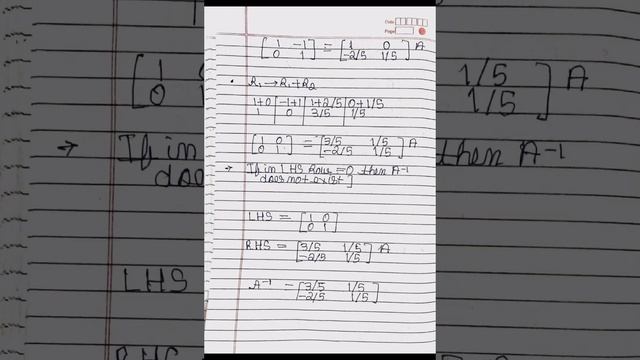 Date
Page
[1 -1] = [1 0] A
[0 1] [-2/5 1/5]
• R₁→R₁+R₂
1+0 | -1+1 | 1+2/5 | 0+1/5
1 | 0 | 3/5 | 1/5
[1 0] = [3/5 1/5] A
[0 1] [-2/5 1/5]
→ If in LHS Row=0 then A⁻¹
does not exist]
LHS = [1 0]
[0 1]
RHS = [3/5 1/5] A
[-2/5 1/5]
A⁻¹ = [3/5 1/5]
[-2/5 1/5]